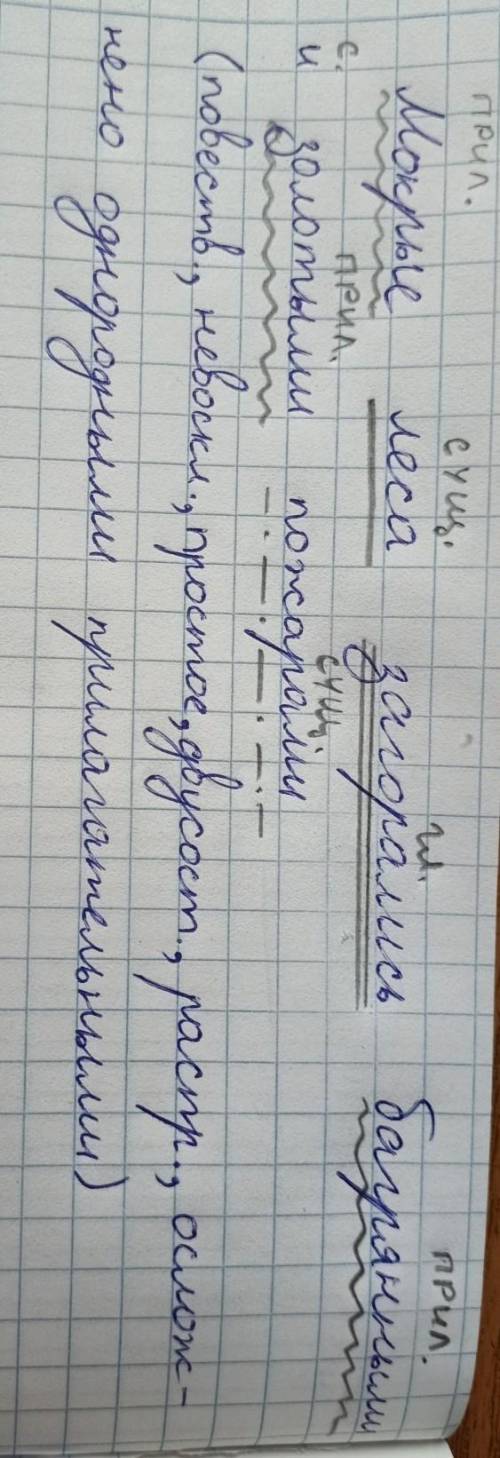 прил. сущ. гл. прил.
Мокрые леса загорались багрянными
с. прил. сущ.
и золотыми пожарами
(повеств., невоскл., простое, двусост., распр., ослож-
нено однородными прилагательными)